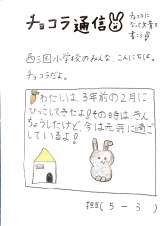 チョコラ通信
チョコラに
なって文章を
書こう!
西三国小学校のみんな、こんにちは。
チョコラだよ。
わたしは、3年前の2月に
ひっこしてきたよ!その時は、きん
ちょうしたけど、今は元気に過ご
しているよ!
担当(5-3)